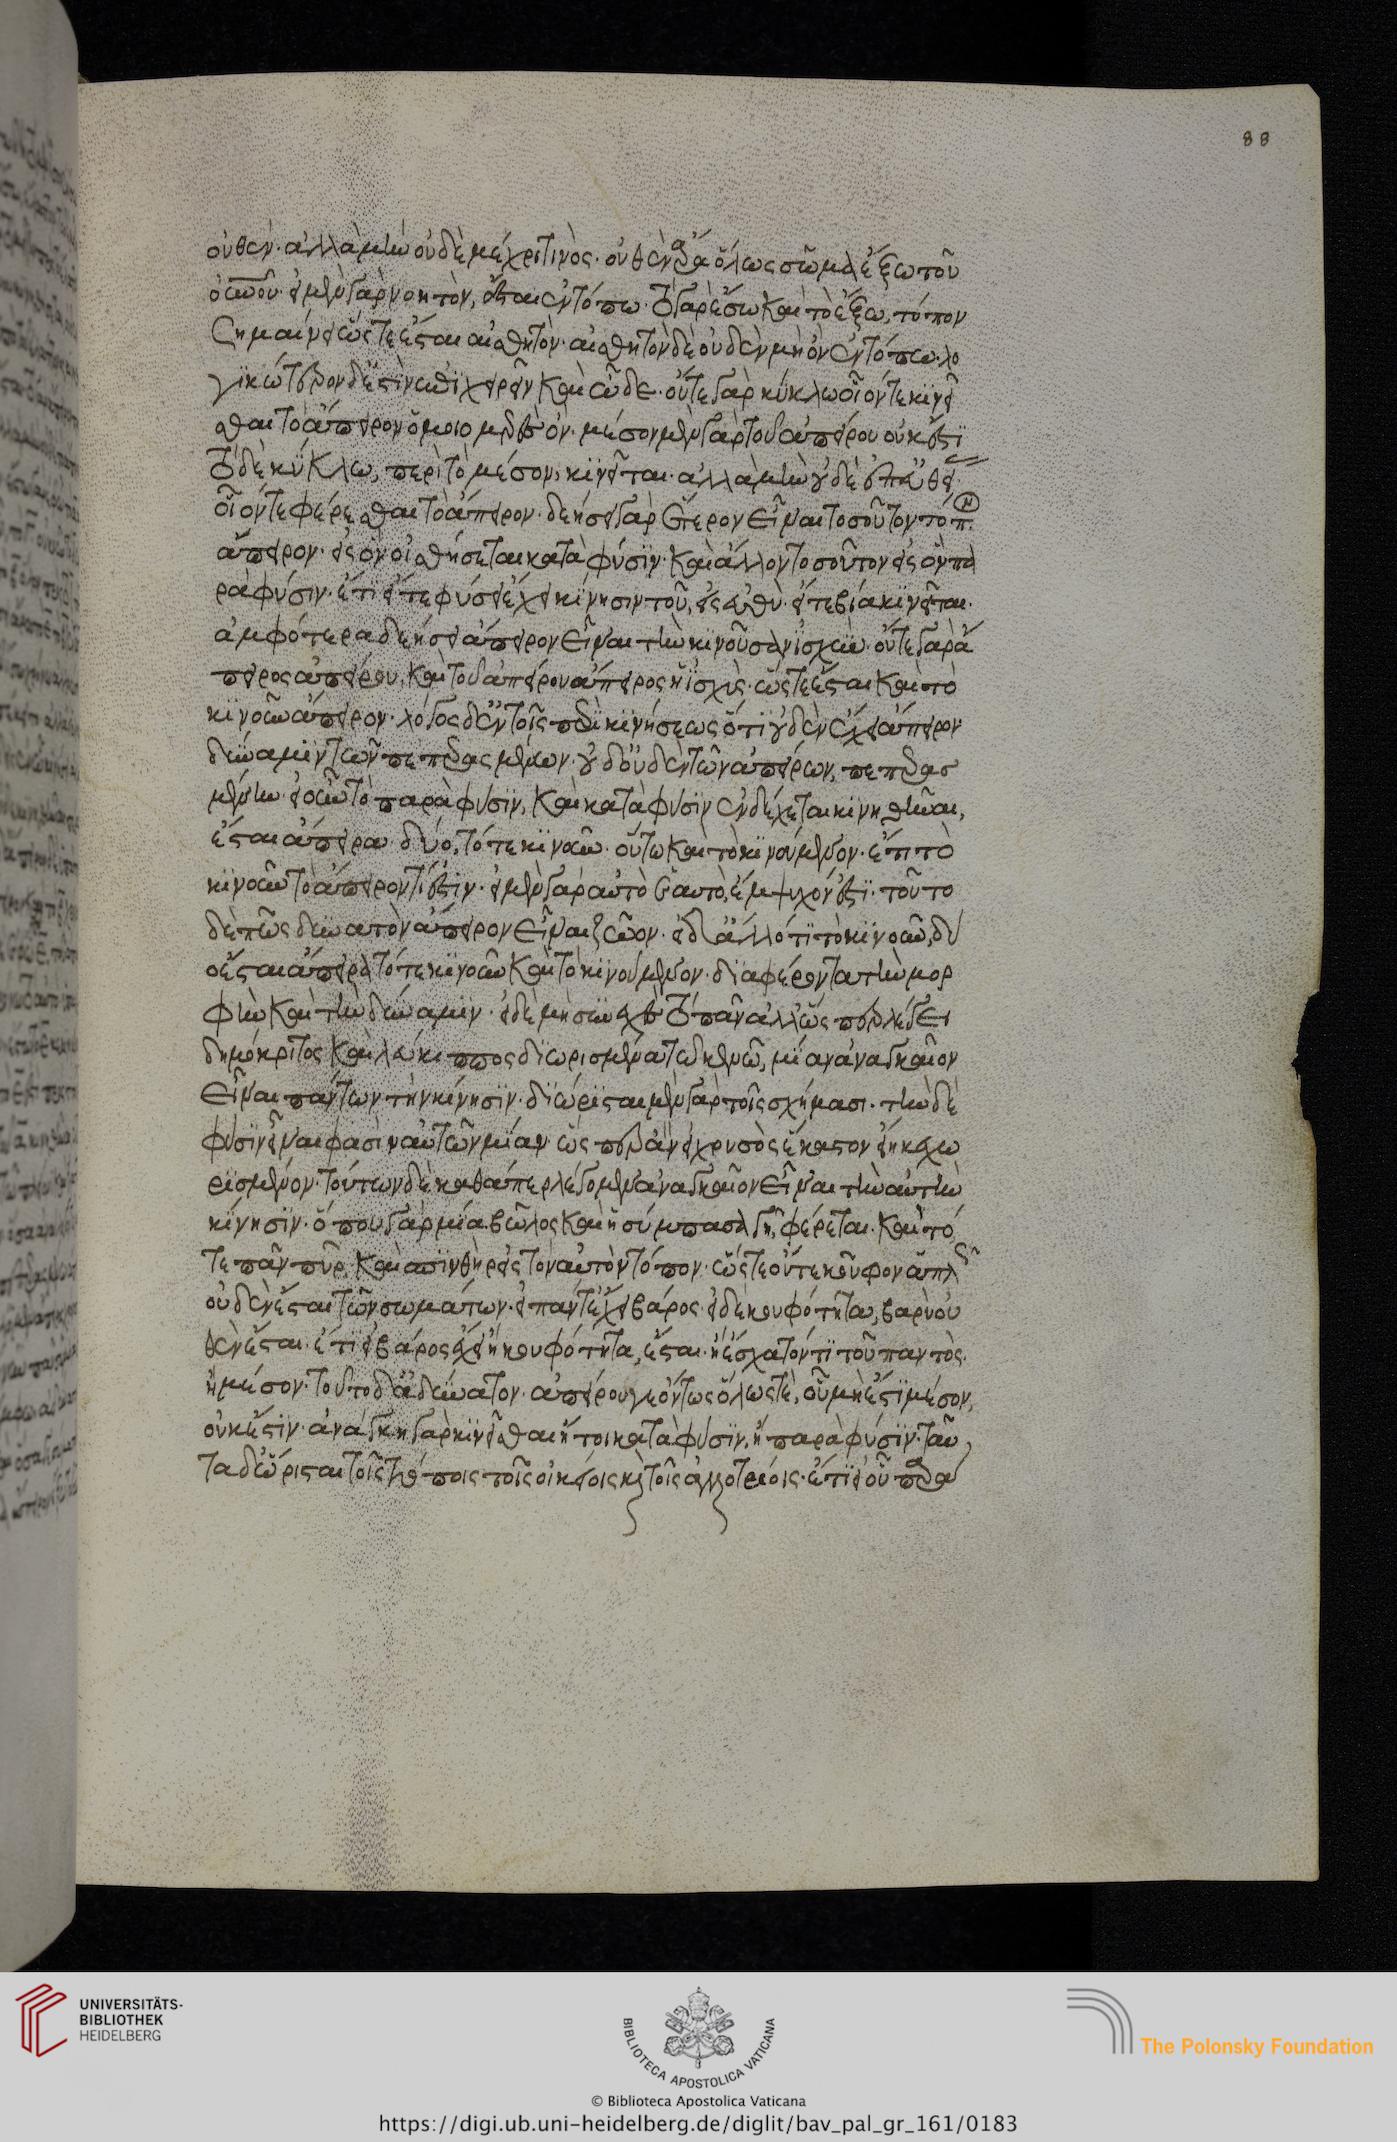 οὐθέν· ἀλλὰ μὴν οὐδὲ μέχρι τινὸς· οὐθὲν ἄρα ὅλως σῶμα ἔξω τοῦ
οὐνοῦ· εἰ μὲν γὰρ νοητὸν, ἔσται ἐν τόπω· τὸ γὰρ ἔσω καὶ τὸ ἔξω, τόπον
σημαίνει ὥστε ἔσται αἰσθητὸν· αἰσθητὸν δὲ οὐδὲν μὴ ὂν ἐν τόπω. λο
γϊκώτερον δ' ἔστϊν ἐπϊχειρεῖν καὶ ὧδε· οὔτε γὰρ κύκλω οἷόν τε κϊνεῖ
σθαι τὸ ἄπειρον ὁμοιομερὲς ὂν· μέσον μὲν γὰρ τοῦ ἀπείρου οὐκ ἔστϊ
τὸ δὲ κύκλω, περὶ τὸ μέσον, κϊνεῖται· ἀλλὰ μὴν οὐδὲ ἐπ' εὐθεί
οἷόν τε φέρεσθαι τὸ ἄπειρον· δεήσει γὰρ ἕτερον εἶναι τοσοῦτον τόπ
ἄπειρον· εἰς ὃν οἰσθήσεται κατὰ φύσϊν· καὶ ἄλλον τοσοῦτον εἰς ὃν πα
ρὰ φύσιν· ἔτϊ εἴτε φύσει ἔχει κϊνησιν τοῦ, εἰς εὐθὺ· εἴτε βία κϊνεῖται·
ἀμφότερα δεήσει ἄπειρον εἶναι τὴν κϊνοῦσαν ἰσχὺν· οὔτε γὰρ ἄ
πειρος ἀπείρου, καὶ τοῦ ἀπείρου ἄπειρος ἡ ἰσχὺς· ὥστε ἔσται καὶ τὸ
κϊνοῦν ἄπειρον· λόγος δ' ἐν τοῖς περὶ κϊνήσεως ὅτϊ οὐδὲν ἔχει ἄπειρον
δύναμϊν τῶν πεπερασμένων· οὐδ' οὐδὲν τῶν ἀπείρων, πεπερασ
μένην· εἰ οὖν τὸ παρὰ φύσϊν, καὶ κατὰ φύσϊν ἐνδέχεται κϊνηθῆναι,
ἔσται ἄπειρα δύο, τό τε κϊνοῦν· οὕτω καὶ τὸ κϊνούμενον· ἔτι τὸ
κϊνοῦν τὸ ἄπειρον τί ἐστϊν· εἰ μὲν γὰρ αὐτὸ ἑαυτὸ, ἔμψυχόν ἐστϊ· τοῦτο
δὲ πῶς δυνατὸν ἄπειρον εἶναι ζῶον· εἰ δ' ἄλλό τϊ τὸ κϊνοῦν, δύ
ο ἔσται ἄπειρα τό τε κϊνοῦν καὶ τὸ κϊνούμενον· δϊαφέροντα τὴν μορ
φὴν καὶ τὴν δύναμϊν· εἰ δὲ μὴ συνεχὲς τὸ πᾶν ἀλλ' ὥσπερ λέγει
δημόκριτος καὶ λεύκιππος δϊωρισμένα τῶ κενῶ, μίαν ἀναγκαῖον
εἶναι πάντων τὴν κίνησϊν· δϊώρϊσται μὲν γὰρ τοῖς σχήμασι· τὴν δὲ
φύσϊν εἶναι φασὶν αὐτῶν μΐαν· ὥσπερ ἂν εἰ χρυσὸς ἕκαστον εἴη κεχω
ρϊσμένον· τούτων δὲ καθάπερ λέγομεν ἀναγκαῖον εἶναι τὴν αὐτὴν
κίνησϊν· ὅπου γὰρ μία βῶλος καὶ ἡ σύμπασα γῆ, φέρεται· καὶ τό
τε πᾶν πῦρ, καὶ σπϊνθὴρ εἰς τὸν αὐτὸν τόπον· ὥστε οὔτε κοῦφον ἁπλῶς
οὐδὲν ἔσται τῶν σωμάτων· εἰ πάντ' ἔχει βάρος· εἰ δὲ κουφότητα, βαρὺ οὐ
θὲν ἔσται· ἔτϊ εἰ βάρος ἔχει ἢ κουφότητα, ἔσται· ἢ ἔσχατόν τϊ τοῦ παντὸς.
ἢ μέσον· τοῦτο δ' ἀδύνατον· ἀπείρου γε ὄντος ὅλως τὲ, οὗ μὴ ἔστϊ μέσον,
οὐκ ἔστϊν· ἀνάγκη γὰρ κϊνεῖσθαι ἤτοι κατὰ φύσϊν, ἢ παρὰ φύσϊν· ταῦ
τα δ' ὥρισται τοῖς τόποις τοῖς οἰκείοις κ(αὶ) τοῖς ἀλλοτρίοις· ἔτϊ εἰ οὗ παρα
88
UNIVERSITÄTS-
BIBLIOTHEK
HEIDELBERG
BIBLIOTECA APOSTOLICA VATICANA
The Polonsky Foundation
© Biblioteca Apostolica Vaticana
https://digi.ub.uni-heidelberg.de/diglit/bav_pal_gr_161/0183